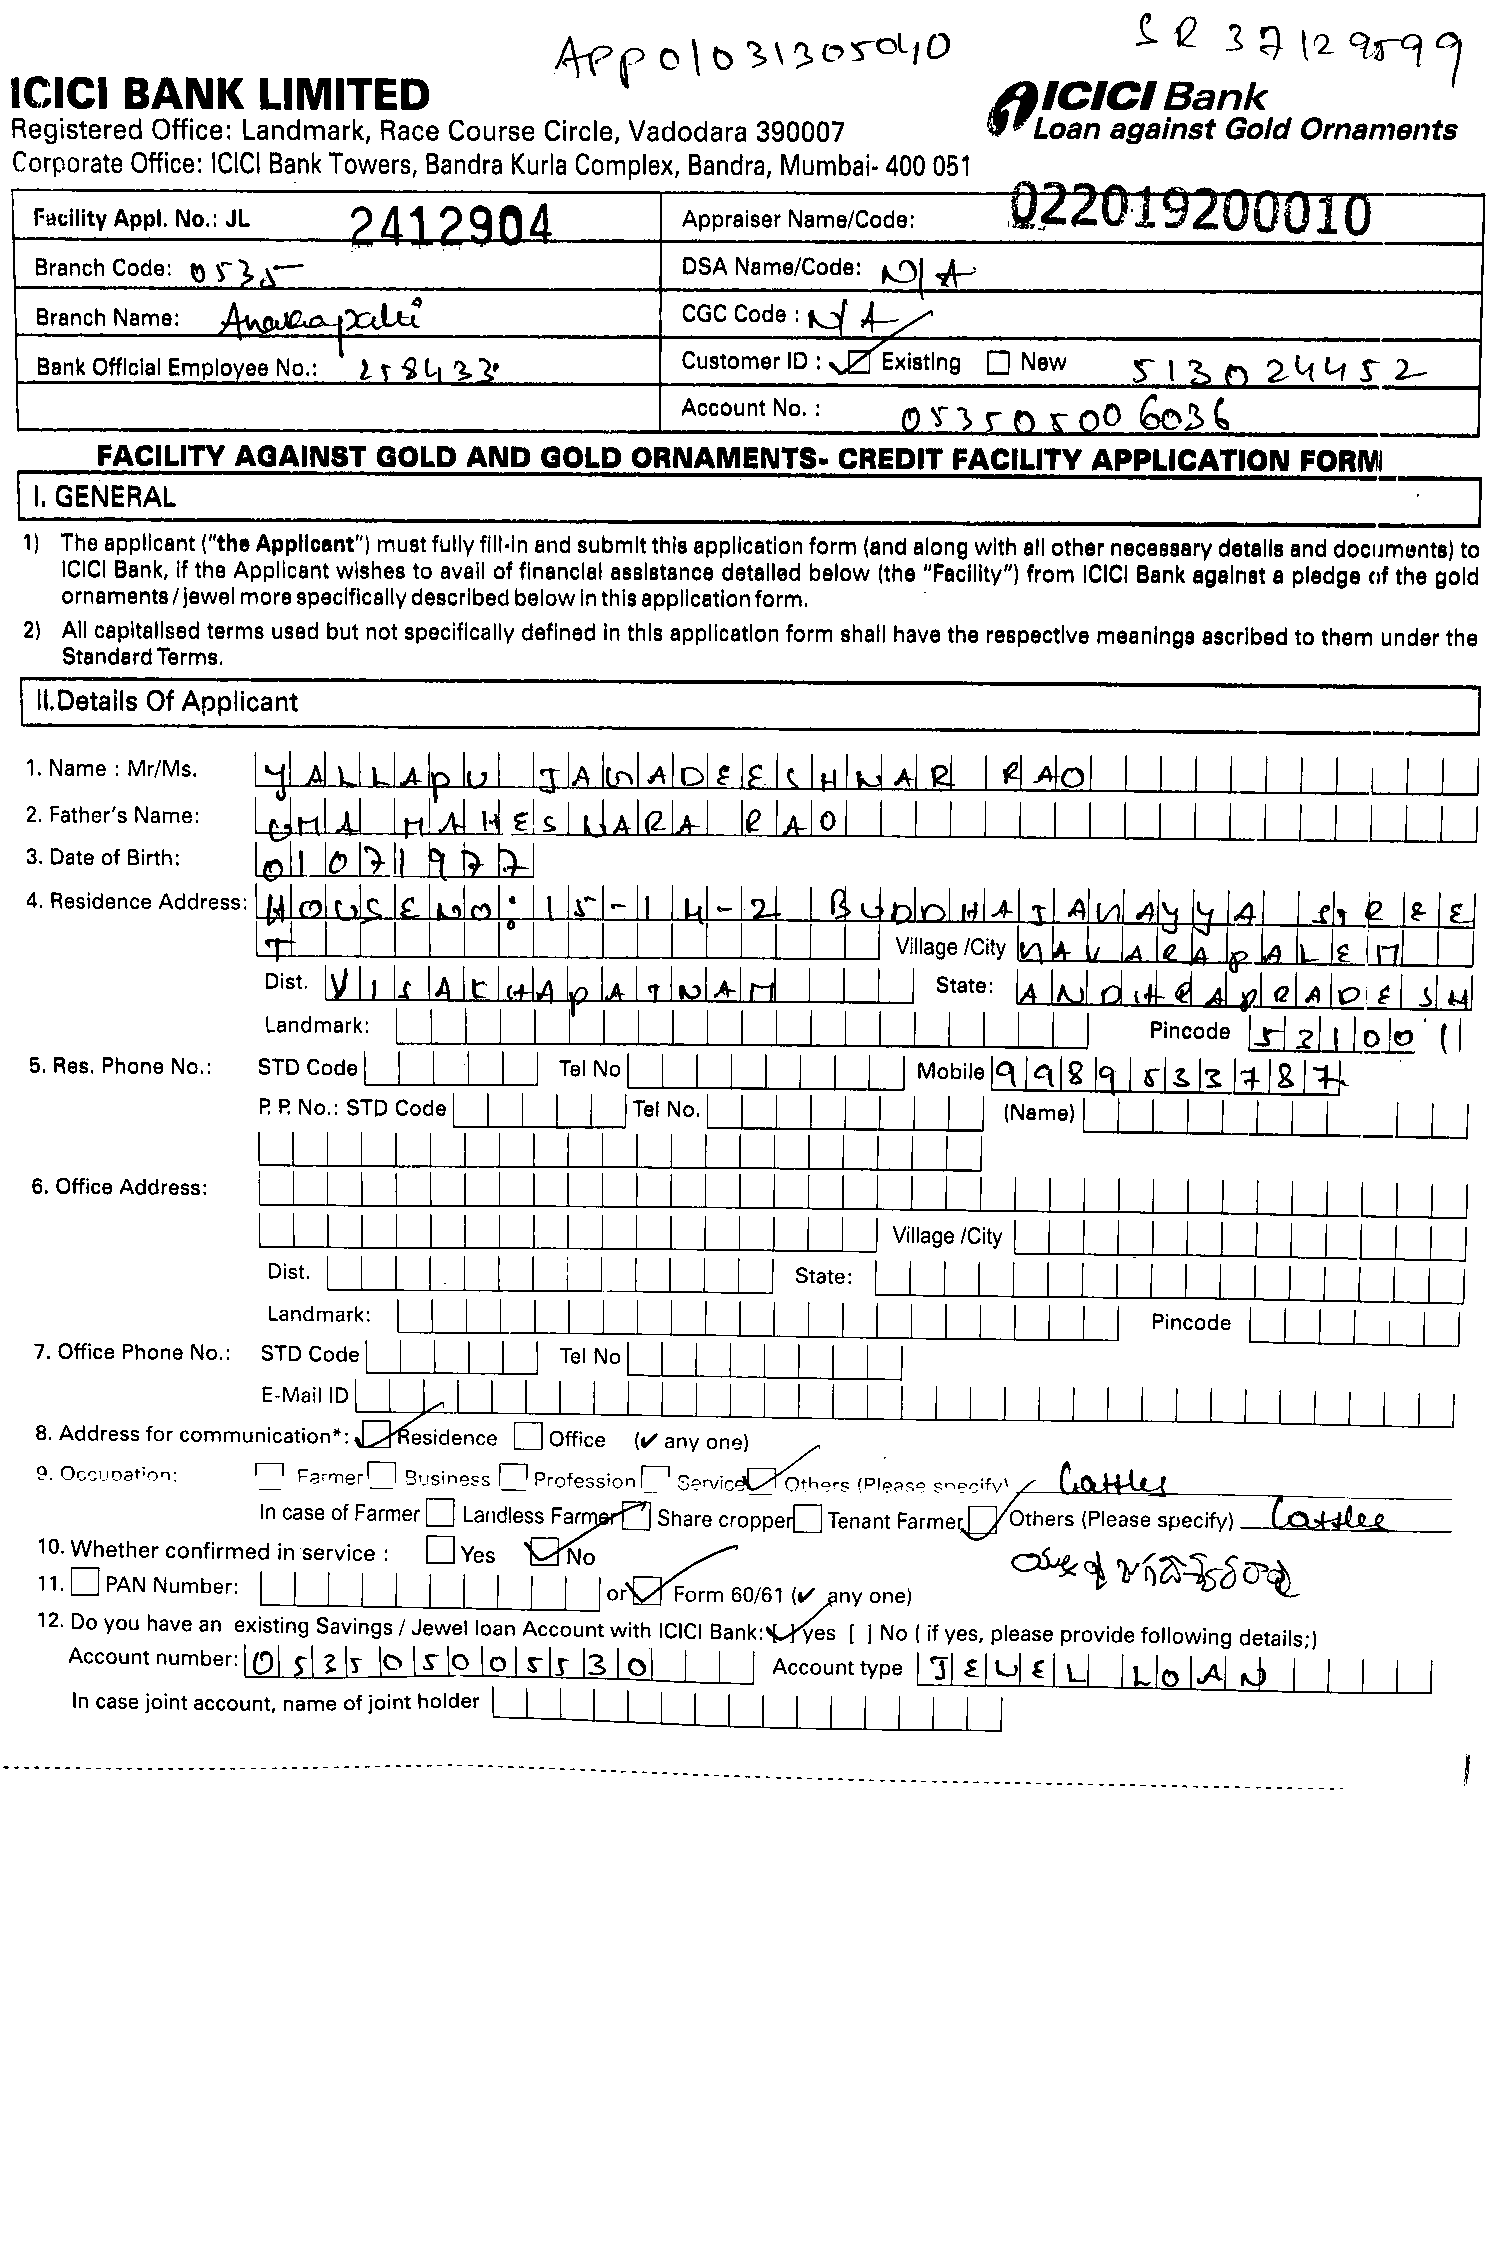 APP01031305040
SR 37129599
ICICI BANK LIMITED
ICICI Bank
Registered Office: Landmark, Race Course Circle, Vadodara 390007
Loan against Gold Ornaments
Corporate Office: ICICI Bank Towers, Bandra Kurla Complex, Bandra, Mumbai- 400 051
Facility Appl. No.: JL 2412904 Appraiser Name/Code: 022019200010
Branch Code: 0535 DSA Name/Code: N/A
Branch Name: Anakapalli CGC Code : N/A
Bank Official Employee No.: 258433 Customer ID : ☑ Existing ☐ New 513024452
Account No. : 053505006036
FACILITY AGAINST GOLD AND GOLD ORNAMENTS- CREDIT FACILITY APPLICATION FORM
I. GENERAL
1) The applicant ("the Applicant") must fully fill-in and submit this application form (and along with all other necessary details and documents) to
ICICI Bank, if the Applicant wishes to avail of financial assistance detailed below (the "Facility") from ICICI Bank against a pledge of the gold
ornaments/jewel more specifically described below in this application form.
2) All capitalised terms used but not specifically defined in this application form shall have the respective meanings ascribed to them under the
Standard Terms.
II.Details Of Applicant
1. Name : Mr/Ms. YALLAPU JAGADEESHWAR RAO
2. Father's Name: UMA MAHESWARA RAO
3. Date of Birth: 01071977
4. Residence Address: HOUSENO: 15-14-2 BUDDHAJANAYYA STREE
T Village /City NAVARAPALEM
Dist. VISAKHAPATNAM State: ANDHRAPRADESH
Landmark: Pincode 531001
5. Res. Phone No.: STD Code Tel No Mobile 9989533787
P. P. No.: STD Code Tel No. (Name)
6. Office Address:
Village /City
Dist. State:
Landmark: Pincode
7. Office Phone No.: STD Code Tel No
E-Mail ID
8. Address for communication*: ☑ Residence ☐ Office (✔ any one)
9. Occupation: ☐ Farmer ☐ Business ☐ Profession ☐ Service ☑ Others (Please specify) Cattles
In case of Farmer ☐ Landless Farmer ☐ Share cropper ☐ Tenant Farmer ☑ Others (Please specify) Cattles
10. Whether confirmed in service : ☐ Yes ☑ No
11. ☐ PAN Number: or ☑ Form 60/61 (✔ any one)
12. Do you have an existing Savings / Jewel loan Account with ICICI Bank: [✔] yes [ ] No ( if yes, please provide following details:)
Account number: 053505005530 Account type JEWEL LOAN
In case joint account, name of joint holder
1